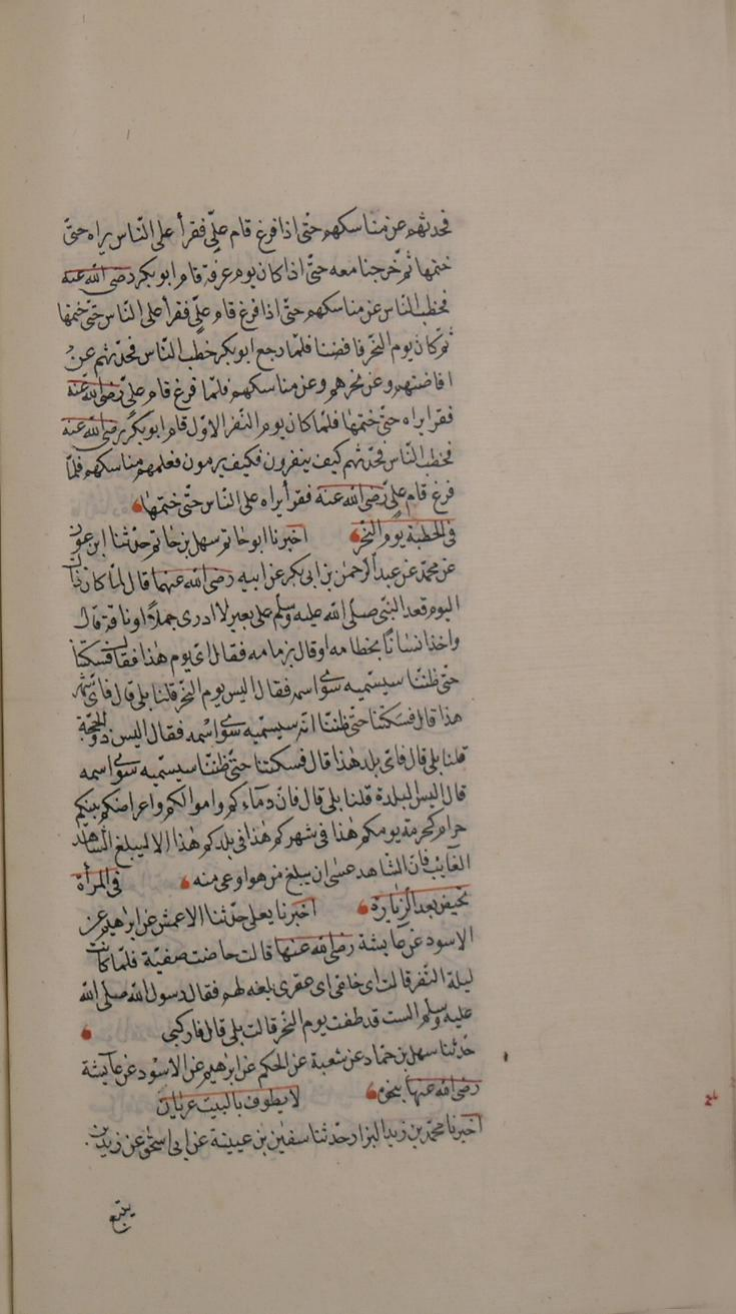 فحدثهم عن مناسكهم حتّى اذا فرغ قام علىّ فقرأ على النّاس براه حتّى
ختمها ثمّ خرجنا معه حتّى اذا كان يوم عرفة قام ابو بكر رضى الله عنه
فخطب النّاس عن مناسكهم حتّى اذا فرغ قام علىّ فقرأ على النّاس حتّى ختمها
ثم كان يوم النّحر فافضنا فلمّا رجع ابو بكر خطب النّاس فحدّثهم عن
افاضتهم وعن نحرهم وعن مناسكهم فلمّا فرغ قام علىّ رضى الله عنه
فقرا براه حتّى ختمها فلمّا كان يوم النّفر الاوّل قام ابو بكر رضى الله عنه
فخطب النّاس فحدّثهم كيف ينفرون فكيف يرمون فعلمهم مناسكهم فلمّا
فرغ قام علىّ رضى الله عنه فقرأ براه على النّاس حتّى ختمها
فى الخطبة يوم النّحر اخبرنا ابو حاتم سهل بن حاتم حدّثنا ابن عون
عن محمّد عن عبد الرحمن بن ابى بكر عن ابيه رضى الله عنهما قال لمّا كان ذلك
اليوم قعد النّبىّ صلّى الله عليه وسلّم على بعير لا ادرى جملاً او ناقة قال
واخذ انسانًا بخطامه او قال بزمامه فقال اىّ يوم هذا فقال فسكتنا
حتّى ظننّا سيسمّيه سوى اسمه فقال اليس يوم النّحر قلنا بلى قال فاىّ شهر
هذا قال فسكتنا حتّى ظننّا انّه سيسمّيه سوى اسمه فقال اليس ذو الحجّة
قلنا بلى قال فاىّ بلد هٰذا قال فسكتنا حتّى ظننّا سيسمّيه سوى اسمه
قال اليس البلدة قلنا بلى قال فانّ دماءكم واموالكم واعراضكم بينكم
حرام كحرمة يومكم هٰذا فى شهركم هٰذا فى بلدكم هٰذا الا ليبلغ الشاهد
الغايب فانّ الشاهد عسى ان يبلغ من هو اوعى منه فى المرأة
تحيض بعد الزّيارة اخبرنا يعلى حدّثنا الاعمش عن ابراهيم عن
الاسود عن عايشة رضى الله عنها قالت حاضت صفيّة فلمّا كانت
ليلة النّفر قالت اى خلقى اى عقرى بلغه لهم فقال رسول الله صلى الله
عليه وسلم الست قد طفت يوم النّحر قالت بلى قال فاركبى
حدّثنا سهل بن حمّاد عن شعبة عن الحكم عن ابرهيم عن الاسود عن عايشة
رضى الله عنها بنحوه لا يطوف بالبيت عريان
اخبرنا محمّد بن زيد البزار حدّثنا سفين بن عيينة عن ابى اسحق عن زيد بن
يثيع